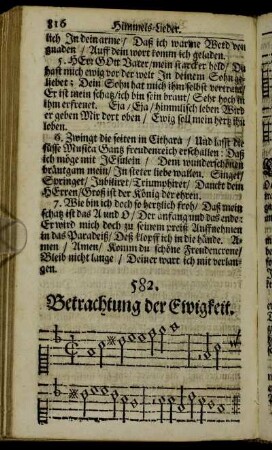 816 Himmels-Lieder.
lich In dein arme/ Daß ich warme Werd von
gnaden/ Auff dein wort komm ich geladen.
5. HErr GOtt Vater/mein starcker held/ Du
hast mich ewig vor der welt In deinem Sohn ge-
liebet; Dein Sohn hat mich ihm selbst vertraut/
Er ist mein schatz/ich bin sein braut/ Sehr hoch in
ihm erfreuet. Eja/Eja/ himmlisch leben Wird
er geben Mir dort oben/ Ewig soll mein hertz ihn
loben.
6. Zwingt die seiten in Cithara/ Und laßt die
süsse Musica Gantz freudenreich erschallen: Daß
ich möge mit JEsulein/ Dem wunderschönen
bräutgam mein/ In steter liebe wallen. Singet/
Springet/ Jubiliret/Triumphiret/ Danckt dem
HErren/Groß ist der König der ehren.
7. Wie bin ich doch so hertzlich froh/ Daß mein
schatz ist das A und O/ Der anfang und das ende:
Er wird mich doch zu seinem preiß Auffnehmen
in das Paradeiß/ Deß klopff ich in die hände. A-
men/ Amen/ Komm du schöne Freudencrone/
Bleib nicht lange/ Deiner wart ich mit verlan-
gen.
582.
Betrachtung der Ewigkeit.